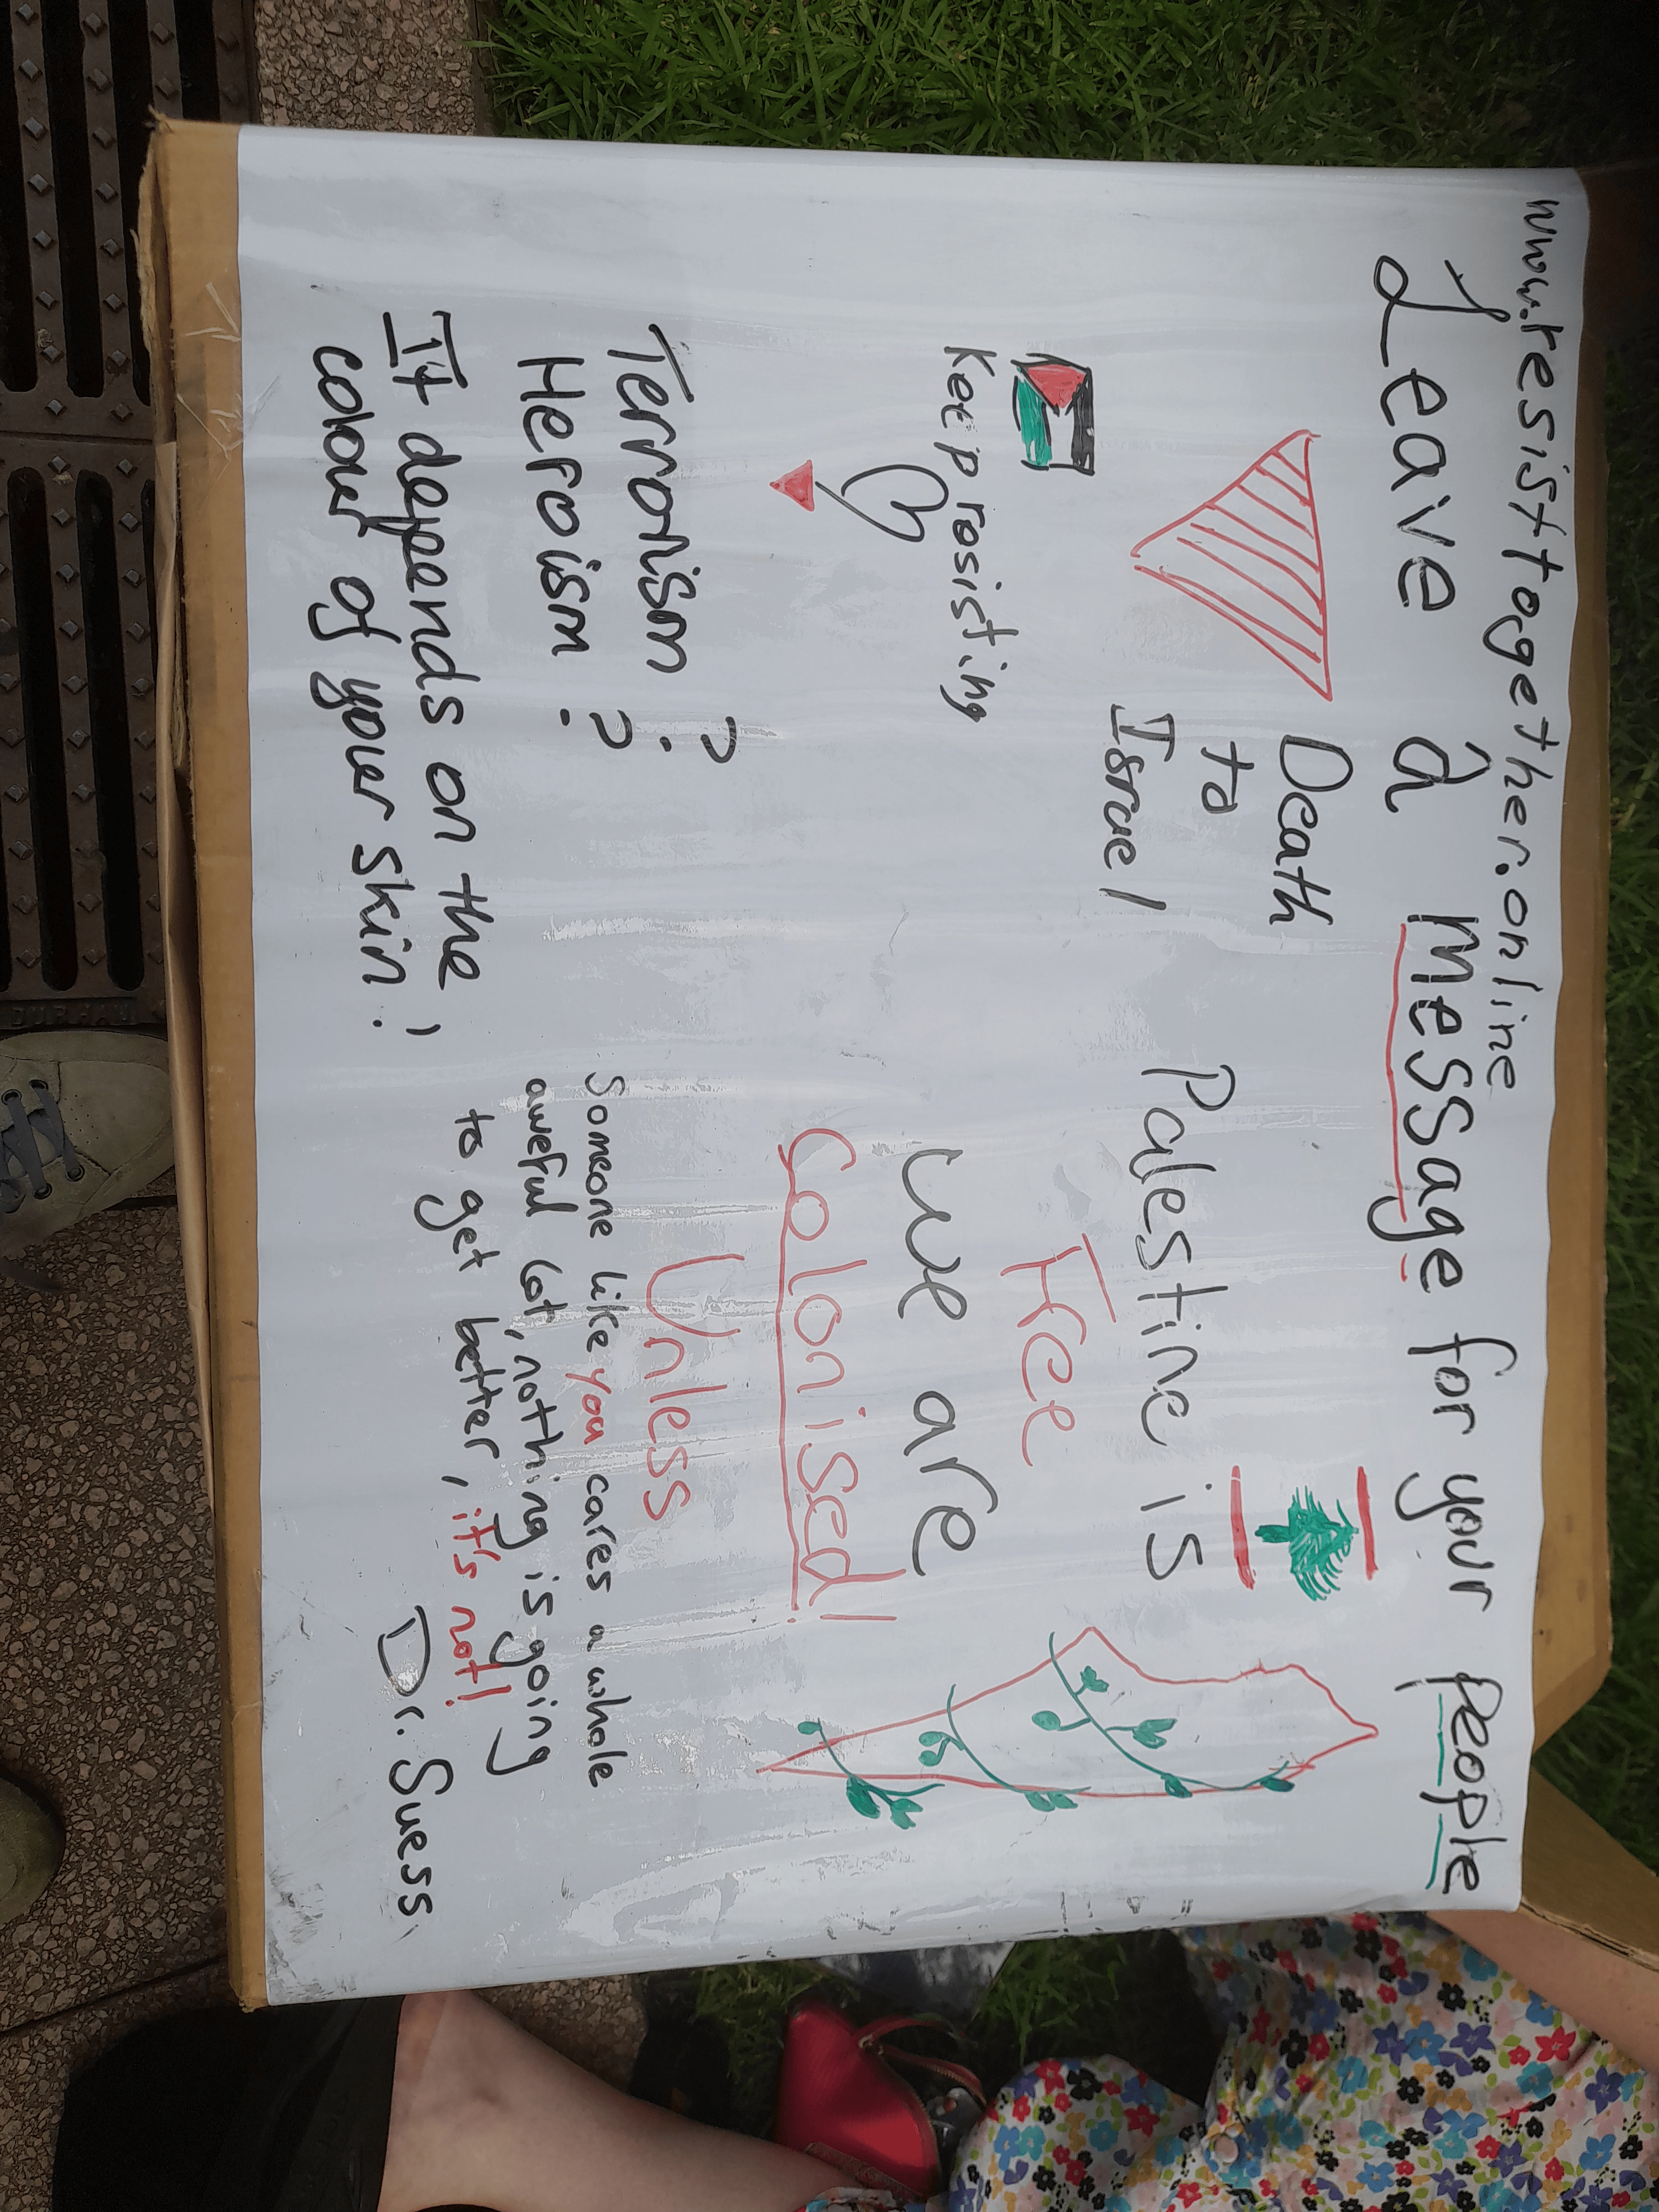 www.resisttogether.online
Leave a message for your people
Death
to
Israel
Keep rosisting
Terrorism ?
Heroism ?
It depends on the
colour of your skin!
Palestine is
Free
we are
Colonised!
Unless
Someone like you cares a whole
aweful lot, nothing is going
to get better, it's not!
Dr. Suess
DURHAM